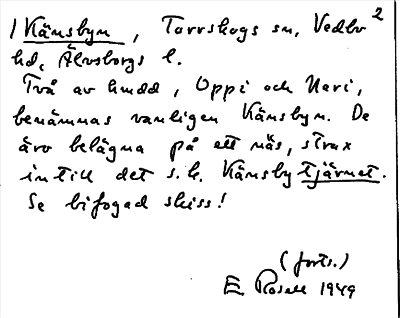 1 Känsbyn, Torrskogs sn, Vedbo 2
hd, Älvsborgs l.
Två av hmdd, Oppi och Neri,
benämnas vanligen Känsbyn. De
äro belägna på ett näs, strax
intill det s.k. Känsbytjärnet.
Se bifogad skiss!
(forts.)
E. Rosell 1949